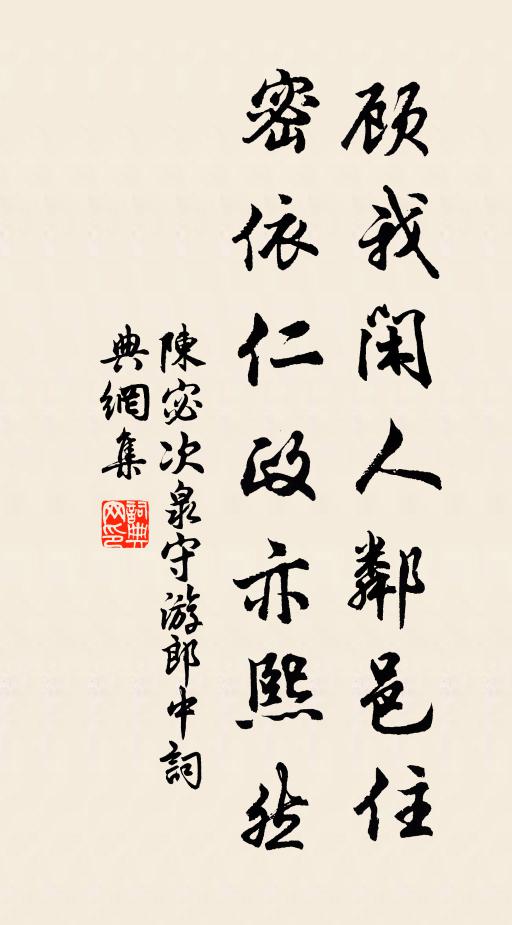 顾我闲人鄰邑住
密依仁政亦熙然
陳宓次泉守游郎中詞
典網集
詞典网印